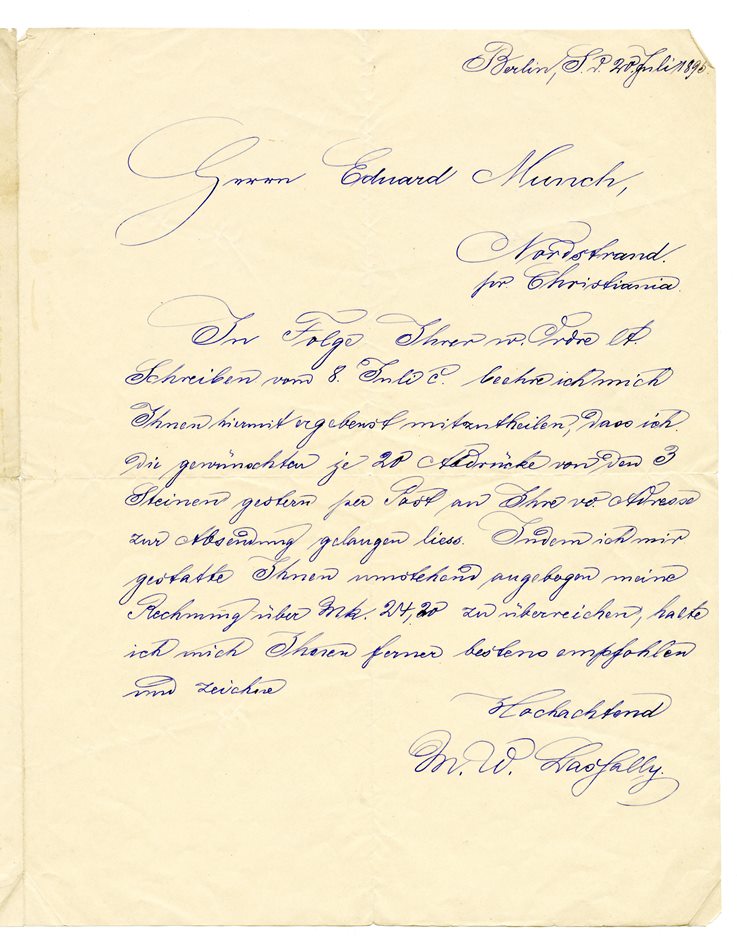 Berlin, S. d. 20. Juli 1895
Herrn Eduard Munch,
Nordstrand.
pr. Christiania.
In Folge Ihrer w. Ordre lt.
Schreiben vom 8. Juli c. beehre ich mich
Ihnen hiermit ergebenst mitzutheilen, dass ich
die gewünschten je 20 Abdrücke von den 3
Steinen gestern per Post an Ihre vo. Adresse
zur Absendung gelangen liess. Indem ich mir
gestatte Ihnen umstehend angebogen meine
Rechnung über Mk. 24,20 zu überreichen, halte
ich mich Ihnen ferner bestens empfohlen
und zeichne
Hochachtend
M. W. Lassally.